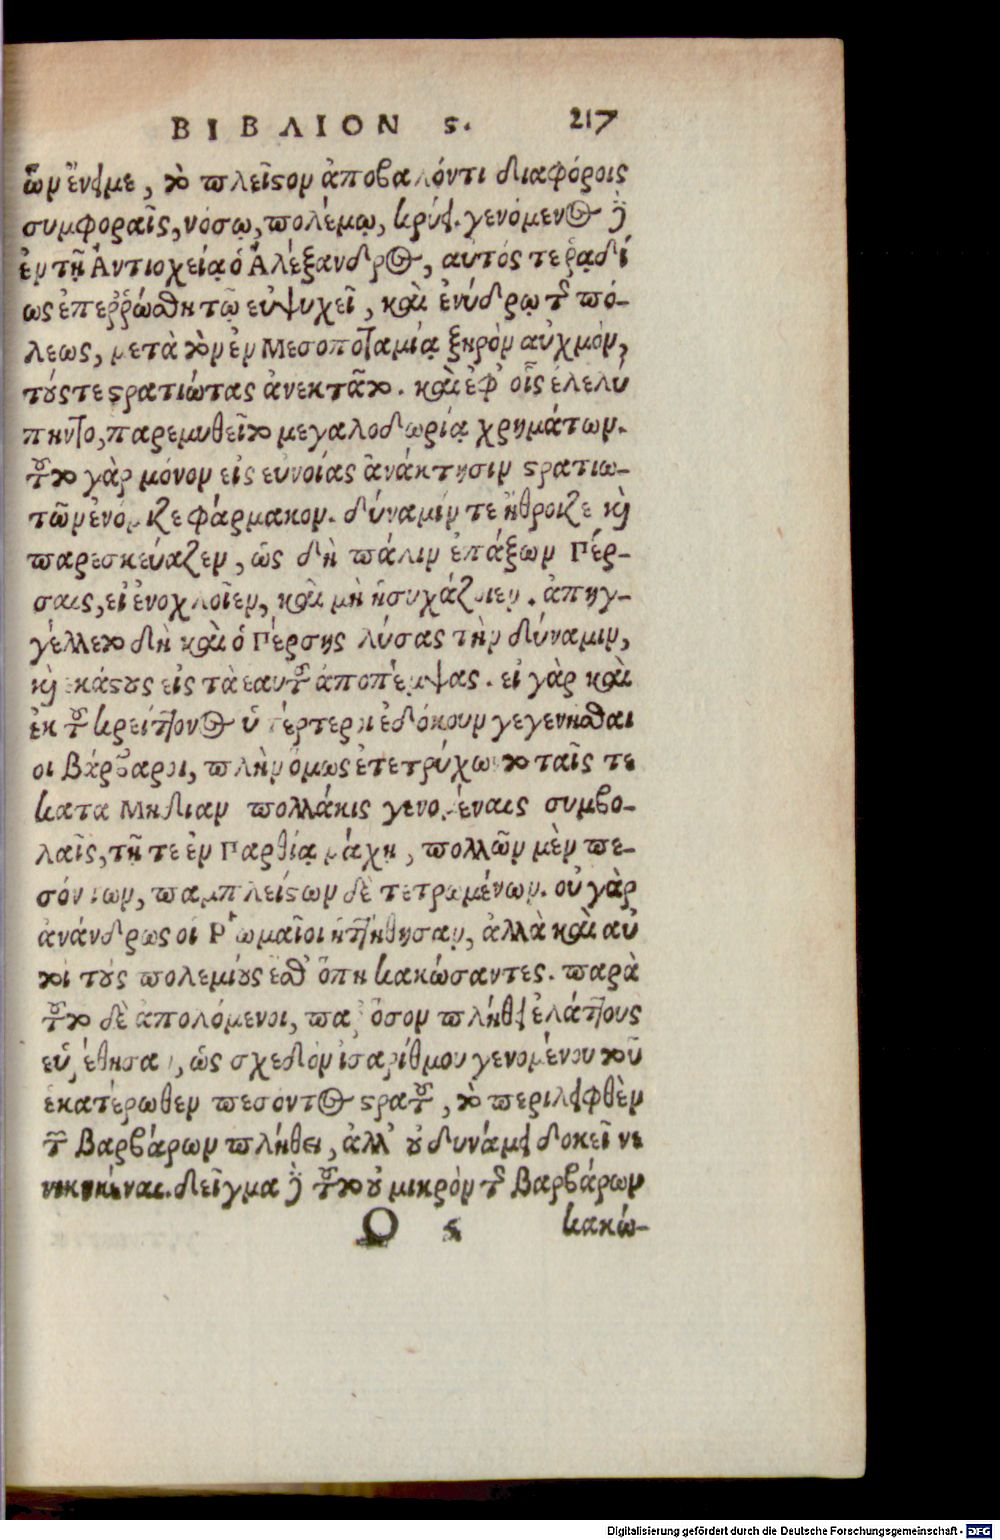 ΒΙΒΛΙΟΝ ϛ. 217
ὧν ἔνειμε, τὸ πλεῖστον ἀποβαλόντι διαφόροις
συμφοραῖς, νόσῳ, πολέμῳ, κρύει. γενόμενος δὲ
ἐν τῇ Ἀντιοχείᾳ ὁ Ἀλέξανδρος, αὐτός τε ῥᾳδί
ως ἐπεῤῥώσθη τῷ εὐψυχεῖ, καὶ ἐνύδρῳ τῆς πό-
λεως, μετὰ τὸν ἐν Μεσοποταμίᾳ ξηρὸν αὐχμὸν,
τούς τε στρατιώτας ἀνεκτᾶτο. καὶ ἐφ᾽ οἷς ἐλελύ
πηντο, παρεμυθεῖτο μεγαλοδωρίᾳ χρημάτων.
τοῦτο γὰρ μόνον εἰς εὐνοίας ἀνάκτησιν στρατιω-
τῶν ἐνόμιζε φάρμακον. δύναμίν τε ἤθροιζε καὶ
παρεσκεύαζεν, ὡς δὴ πάλιν ἐπάξων Πέρ-
σαις, εἰ ἐνοχλοῖεν, καὶ μὴ ἡσυχάζοιεν. ἀπηγ-
γέλλετο δὴ καὶ ὁ Πέρσης λύσας τὴν δύναμιν,
καὶ ἑκάστους εἰς τὰ ἑαυτοῦ ἀποπέμψας. εἰ γὰρ καὶ
ἐκ τοῦ κρείττονος ὑπέρτεροι ἐδόκουν γεγενῆσθαι
οι Βάρβαροι, πλὴν ὅμως ἐτετρύχωντο ταῖς τε
κατα Μηδιαν πολλάκις γενομέναις συμβο-
λαῖς, τῇ τε ἐν Παρθίᾳ μάχῃ, πολλῶν μὲν πε-
σόντων, παμπλείστων δὲ τετρωμένων. οὐ γὰρ
ἀνάνδρως οἱ Ῥωμαῖοι ἡττήθησαν, ἀλλὰ καὶ αὐ
τοὶ τοὺς πολεμίους ἔσθ᾽ ὅπη κακώσαντες. παρὰ
τοῦτο δὲ ἀπολόμενοι, παρ᾽ ὅσον πλήθει ἐλάττους
εὑρέθησαν, ὡς σχεδὸν ἰσαρίθμου γενομένου τοῦ
ἑκατέρωθεν πεσόντος στρατοῦ, τὸ περιλειφθὲν
τῶν Βαρβάρων πλήθει, ἀλλ᾽ οὐ δυνάμει δοκεῖ νε
νικηκέναι. δεῖγμα δὲ τοῦτο οὐ μικρὸν τῆς Βαρβάρων
Ο ϛ κακώ-
Digitalisierung gefördert durch die Deutsche Forschungsgemeinschaft - DFG